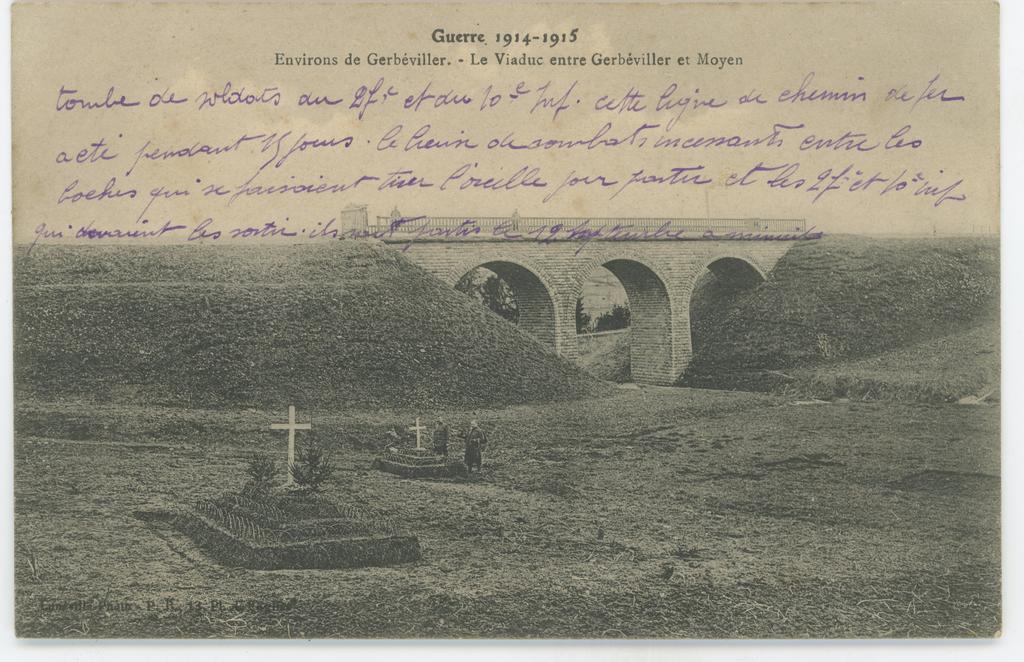 Guerre 1914-1915
Environs de Gerbéviller. - Le Viaduc entre Gerbéviller et Moyen
tombe de soldats du 2f.e et du 10e Inf. cette ligne de chemin de fer
a été pendant 15 jours. le lieu de combats incessants entre les
boches qui se faisaient tirer l'oreille pour partir et les 2f.e et 10e inf
qui devaient les sortir. ils sont partis le 12 septembre a minuit
Lunéville-Photo - P. R., 13. Ph.